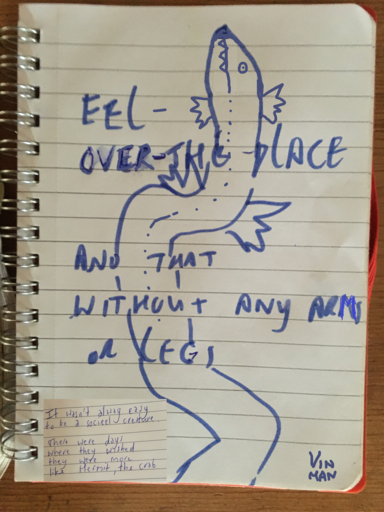 EEL-
OVER-THE-PLACE
AND THAT
WITHOUT ANY ARMS
OR LEGS
It wasn't always easy
to be a society creature
There were days
where they wished
they were more
like Helmut, the crab
VIN
MAN